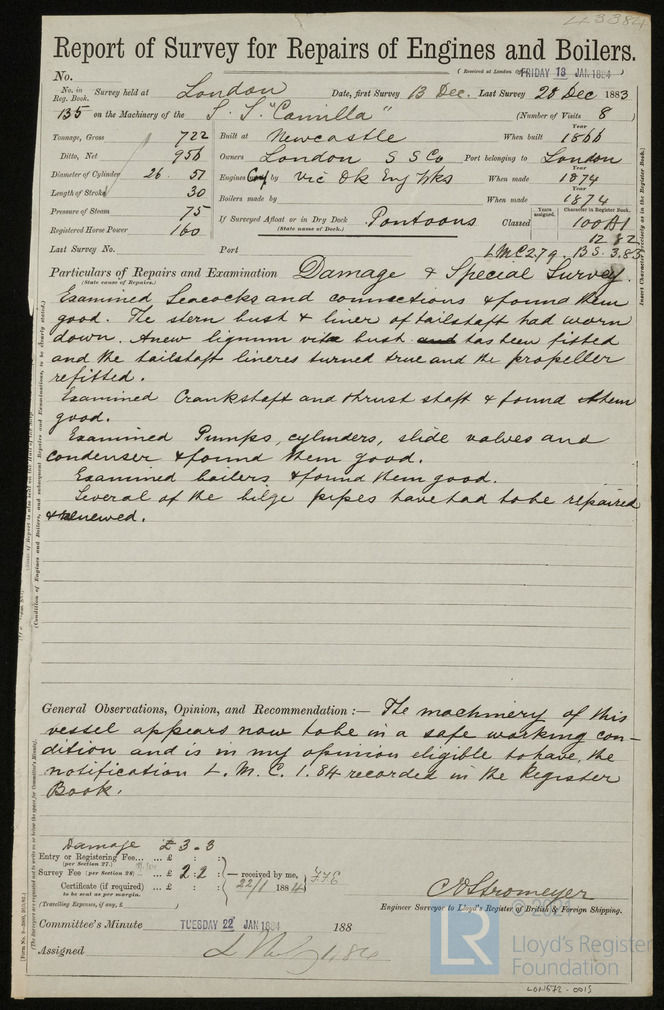 43384
Report of Survey for Repairs of Engines and Boilers.
(Received at London Office FRIDAY 18 JAN 1884)
No.
No. in Reg. Book. Survey held at London Date, first Survey 13 Dec. Last Survey 28 Dec 1883
135 on the Machinery of the S. S. "Camilla" (Number of Visits 8)
Tonnage, Gross 722 Built at Newcastle When built Year 1866
Ditto, Net 956 Owners London S S Co Port belonging to London
Diameter of Cylinder 26. 51 Engines by Vic Dk Eng Wks When made Year 1874
Length of Stroke 30 Boilers made by When made Year 1874
Pressure of Steam 75 If Surveyed Afloat or in Dry Dock Pontoons Classed Years assigned. Character in Register Book. 100 A1
Registered Horse Power 160 (State name of Dock.) 12 82
Last Survey No. Port L.M.C 2.79. B S. 3.83
Particulars of Repairs and Examination Damage & Special Survey.
(State cause of Repairs.)
Examined Seacocks and connections & found them
good. The stern bush & liner of tailshaft had worn
down. A new lignum vitæ bush and has been fitted
and the tailshaft lineres turned true and the propeller
refitted.
Examined Crankshaft and thrust shaft & found them
good.
Examined Pumps, cylinders, slide valves and
condenser & found them good.
Examined boilers & found them good.
Several of the bilge pipes have had to be repaired
& renewed.
General Observations, Opinion, and Recommendation:— The machinery of this
vessel appears now to be in a safe working con-
dition and is in my opinion eligible to have the
notification L. M. C. 1. 84 recorded in the Register
Book.
Damage £ 3 - 3
Entry or Registering Fee... ... £ : :
(per Section 27.)
Survey Fee (per Section 28) ... ... £ 2 : 2 :
— received by me,
22/1 1884
Certificate (if required) ... £ : :
to be sent as per margin.
(Travelling Expenses, if any, £ )
C E Stromeyer
Engineer Surveyor to Lloyd's Register of British & Foreign Shipping.
Committee's Minute TUESDAY 22 JAN 1884 188
Assigned
1.84
Insert Character precisely as in the Register Book.
(Condition of Engines and Boilers, and subsequent Repairs and Examinations, to be clearly stated.)
(The Surveyors are requested not to write on or below the space for Committee's Minute.)
© 2021
LR
Lloyd's Register
Foundation
LON572-0019